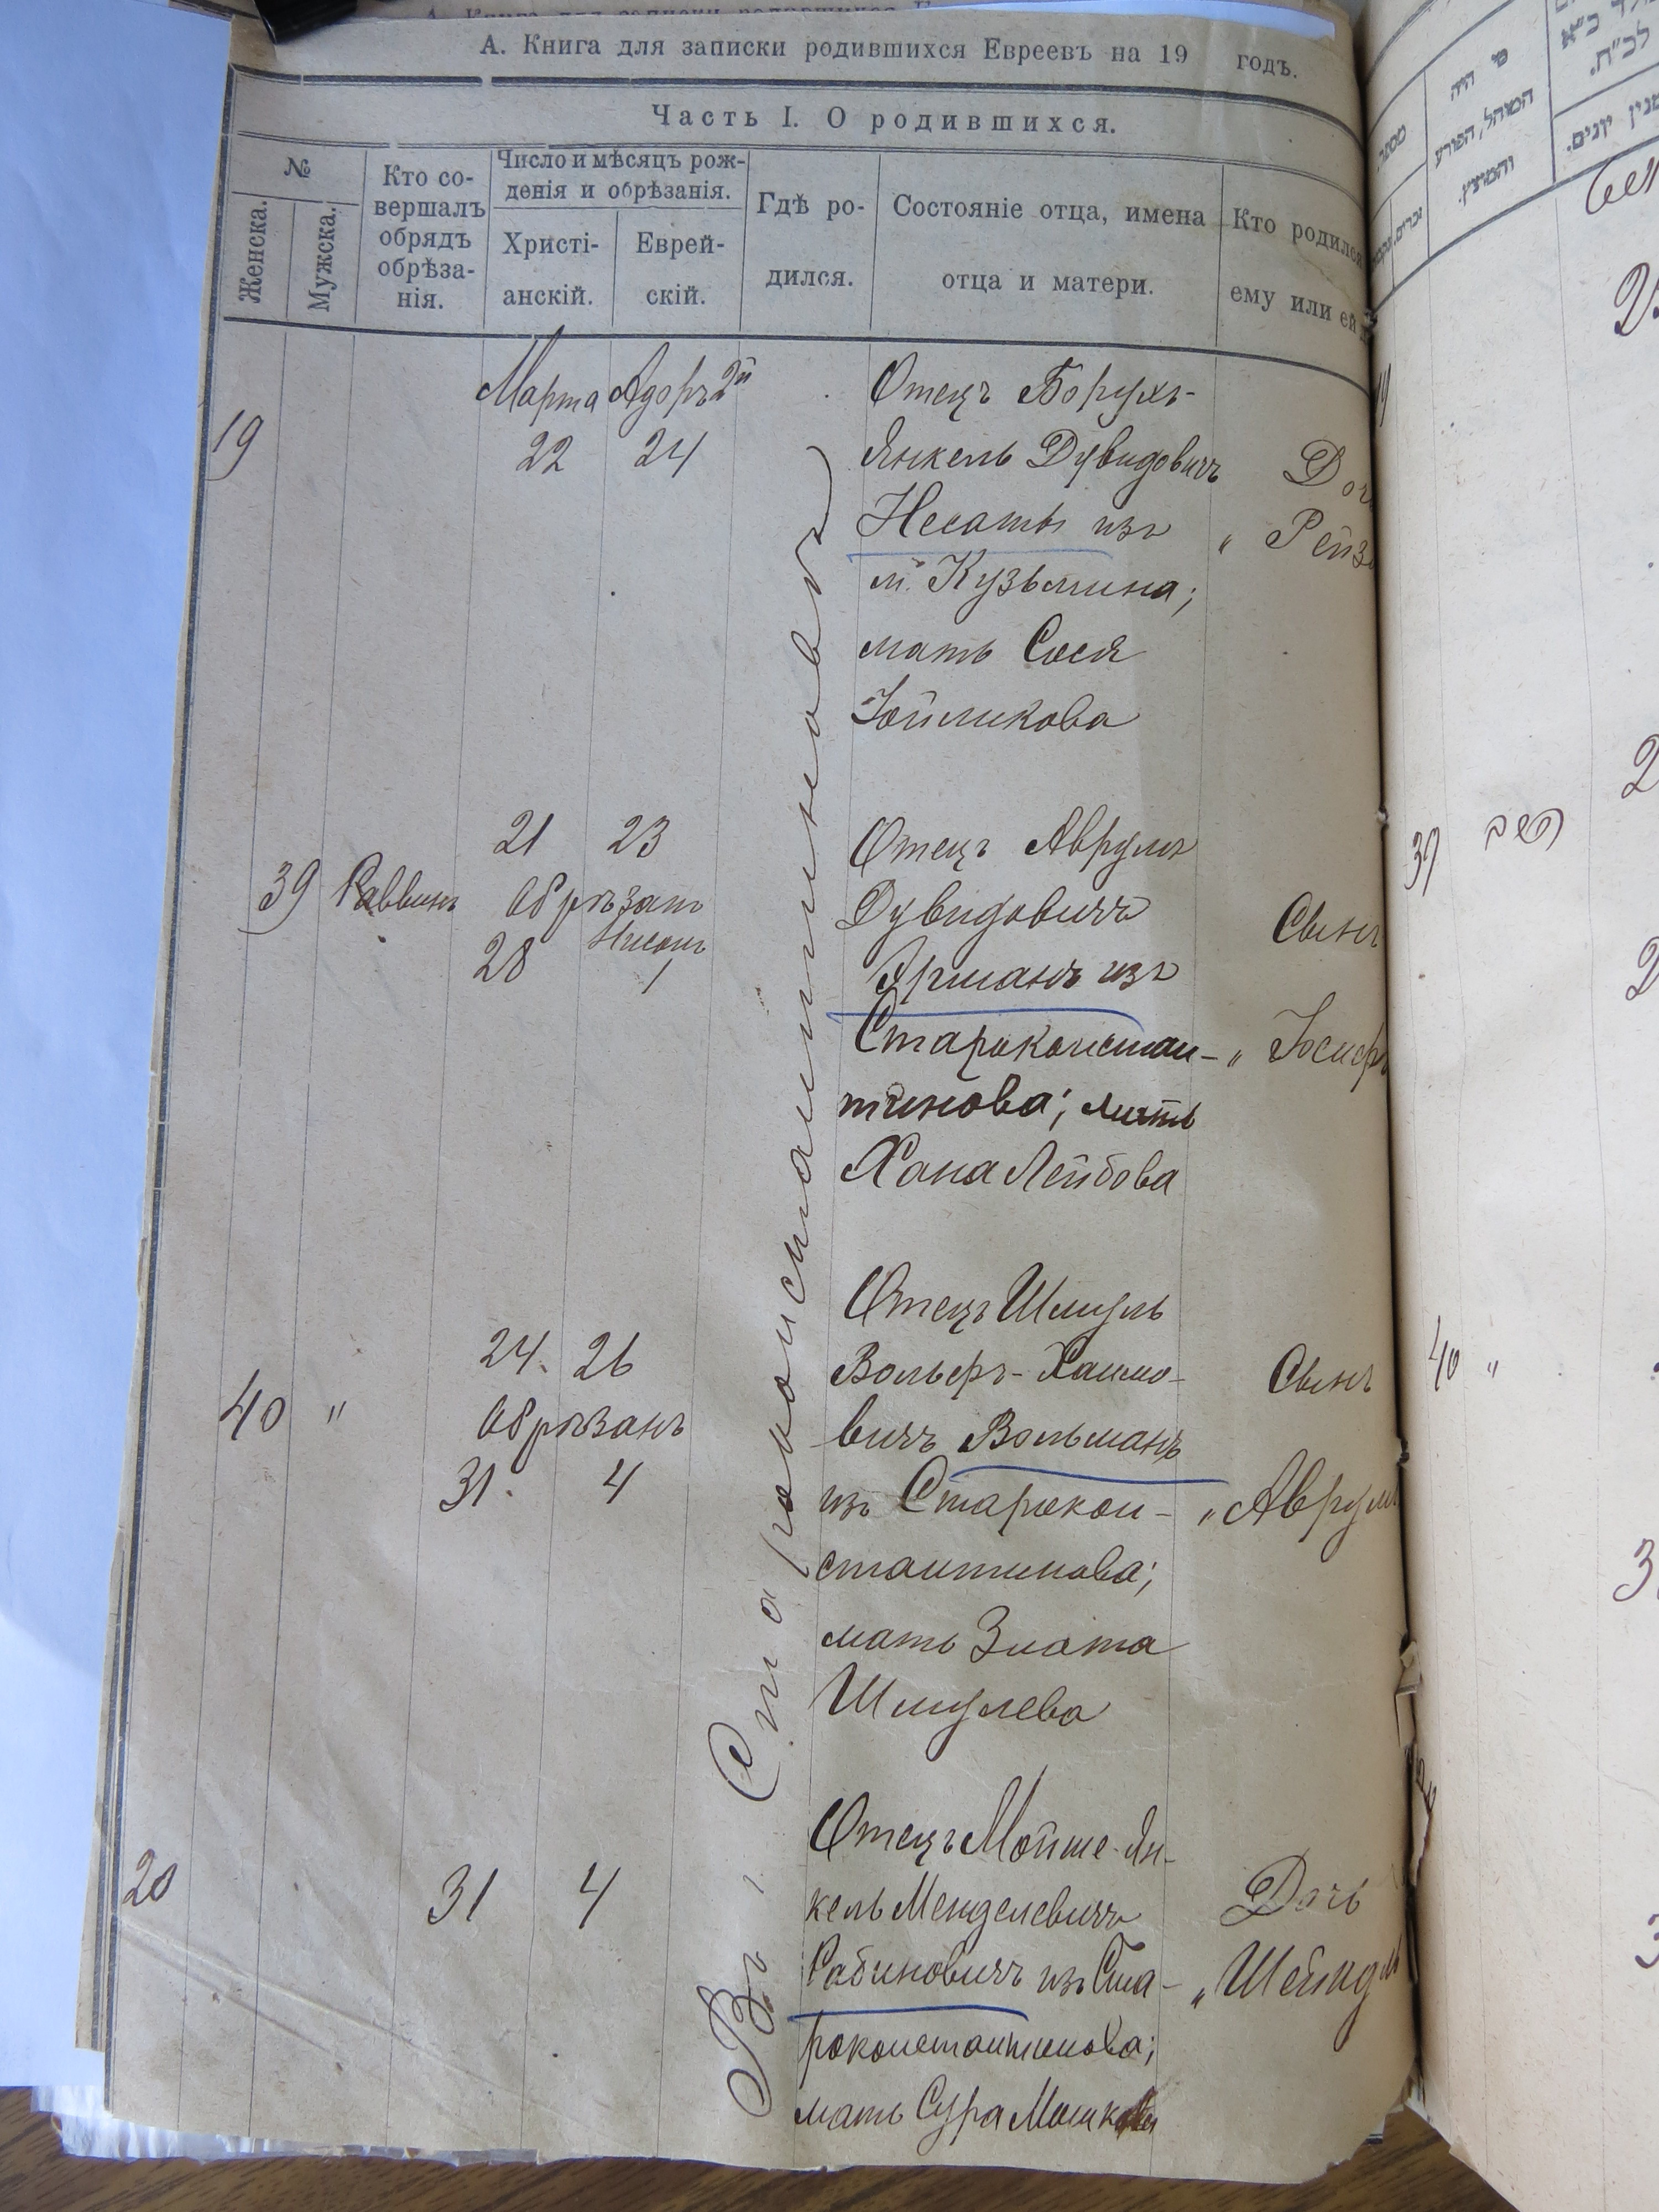 А. Книга для записки родившихся Евреевъ на 19 годъ.
Часть I. О родившихся.
№
Женска.
Мужска.
Кто со-
вершалъ
обрядъ
обрѣза-
нія.
Число и мѣсяцъ рож-
денія и обрѣзанія.
Христі-
анскій.
Еврей-
скій.
Гдѣ ро-
дился.
Состояніе отца, имена
отца и матери.
Кто родился
ему или ей
Въ г. Староконстантиновѣ
19
Марта Адоръ 2й
22 24
Отецъ Борухъ-
Янкель Дувидовичъ
Несать изъ
м. Кузьмина;
мать Сося
Іойликова
Доч
" Рейз
39 Раввинъ
21 23
Обрѣзанъ
Нисонъ
28 1
Отецъ Аврумъ
Дувидовичъ
изъ
Староконстан-
тинова; мать
Хана Лейбова
Сынъ
" Іосифъ
40 "
24. 26
Обрѣзанъ
31. 4
Отецъ Шмуль
Вольфъ-Хаимо-
вичъ Вольманъ
изъ Старокон-
стантинова;
мать Злота
Шмулева
Сынъ
" Аврум
20
31 4
Отецъ Мойше-Ян-
кель Менделевичъ
Рабиновичъ изъ Ста-
роконстантинова;
мать Сура Мошкова
Дочь
" Шейнд
מספר
מי היה
המוהל, הפורע
והמוצץ.
39
40 "